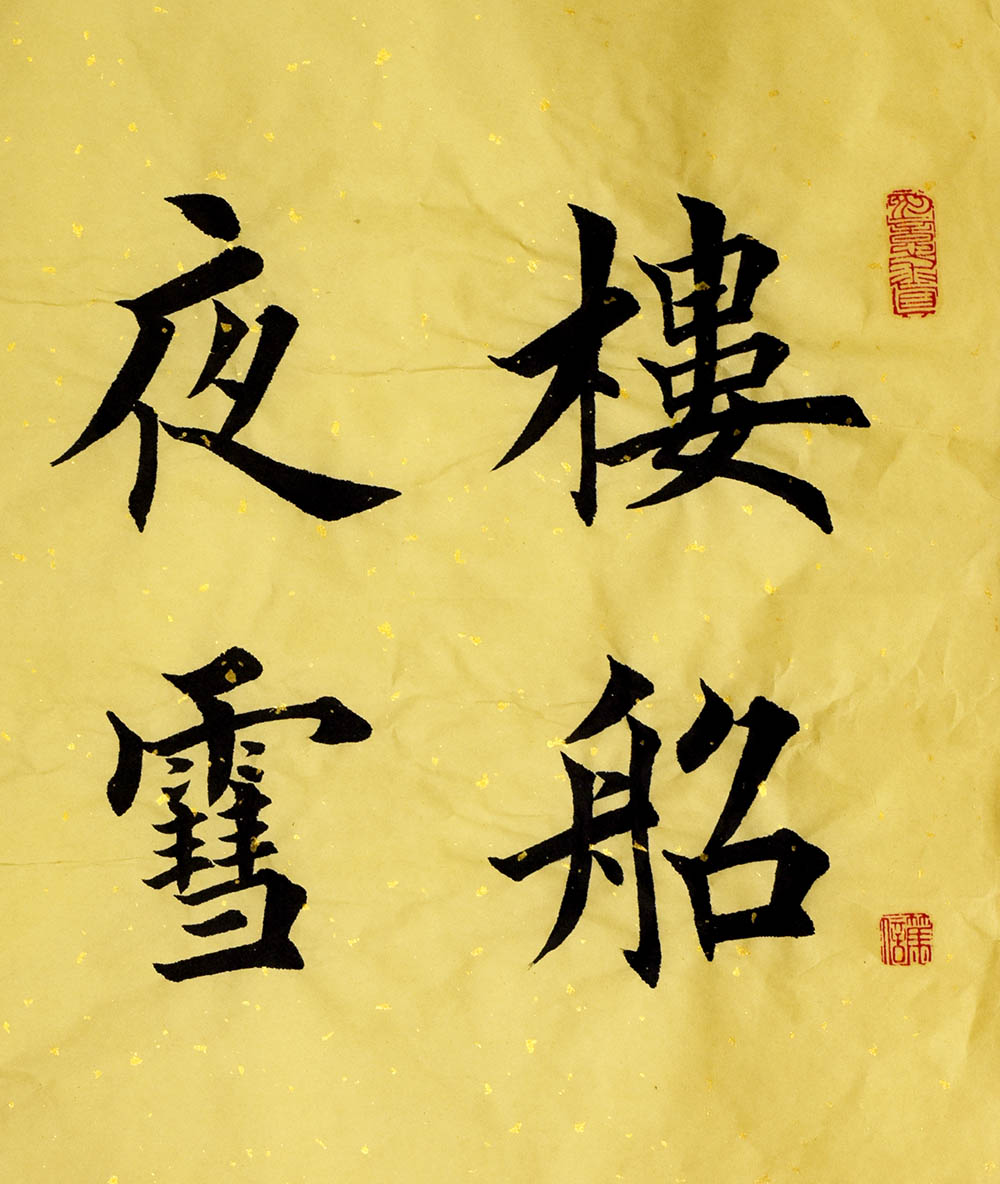 樓船
夜雪